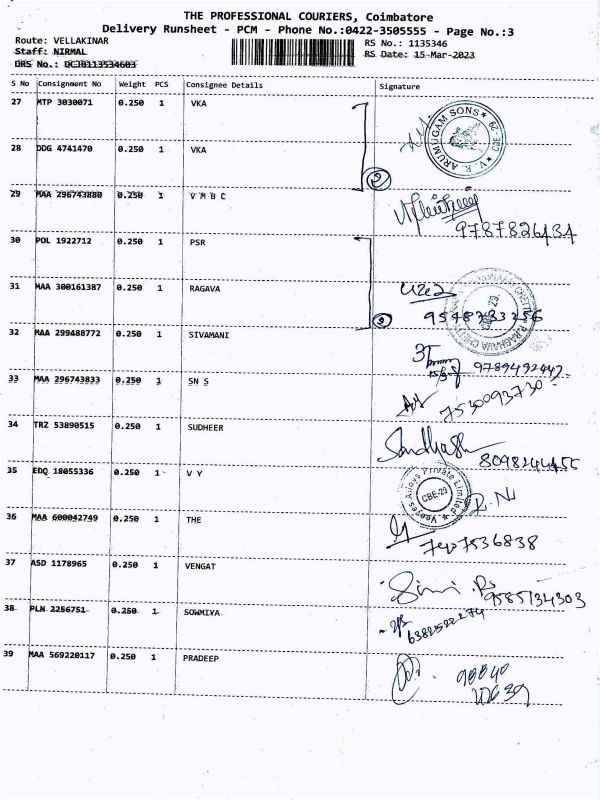 THE PROFESSIONAL COURIERS, Coimbatore
Delivery Runsheet - PCM - Phone No.:0422-3505555 - Page No.:3
Route: VELLAKINAR
RS No.: 1135346
Staff: NIRMAL
RS Date: 15-Mar-2023
DRS No.: DCJB113534603
S No Consignment No Weight PCS Consignee Details Signature
27 MTP 3030071 0.250 1 VKA
V.K. ARUMUGAM SONS CBE-29
28 DDG 4741470 0.250 1 VKA
2
29 MAA 296743880 0.250 1 V M B C
9787826434
30 POL 1922712 0.250 1 PSR
31 MAA 300161387 0.250 1 RAGAVA
CBE-29
9548733256
32 MAA 299488772 0.250 1 SIVAMANI
9789492442
33 MAA 296743833 0.250 1 SN S
7530093730
34 TRZ 53890515 0.250 1 SUDHEER
8098244456
35 EDQ 18055336 0.250 1 V Y
Vpeyes Alloys Private Limited CBE-29
36 MAA 600042749 0.250 1 THE
37 ASD 1178965 0.250 1 VENGAT
9585134303
38 PLN 2256751 0.250 1 SOWMIYA
6382522274
39 MAA 569220117 0.250 1 PRADEEP